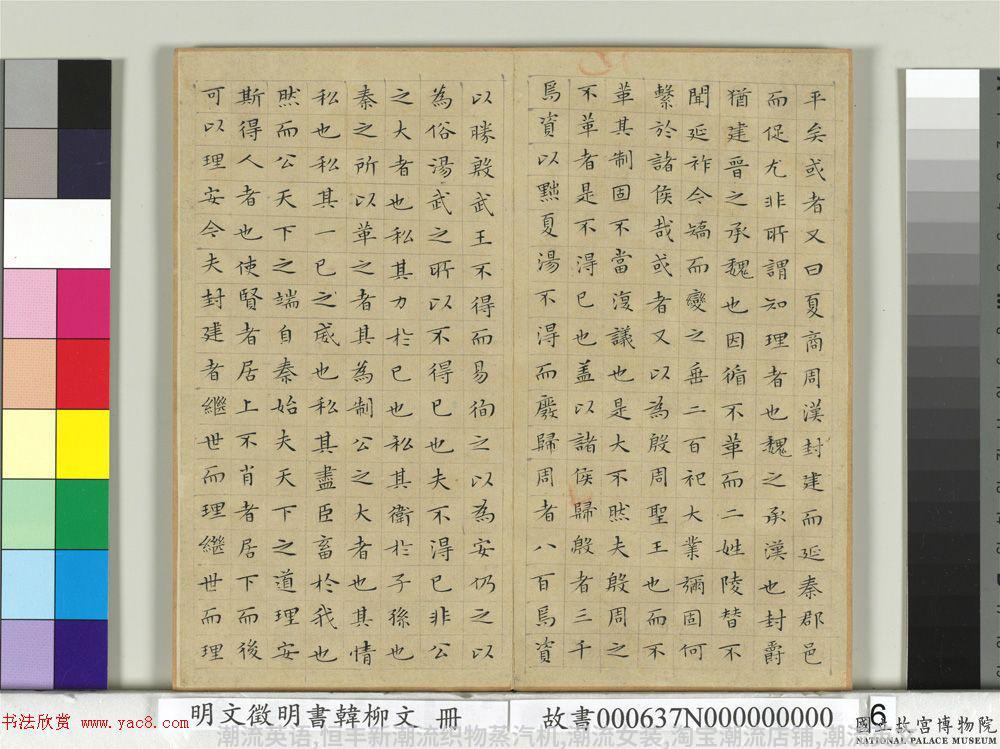 平矣或者又曰夏商周漢封建而延秦郡邑
而促尤非所謂知理者也魏之承漢也封爵
猶建晉之承魏也因循不革而二姓陵替不
聞延祚今矯而變之垂二百祀大業彌固何
繫於諸侯哉或者又以為殷周聖王也而不
革其制固不當復議也是大不然夫殷周之
不革者是不得已也蓋以諸侯歸殷者三千
焉資以黜夏湯不得而廢歸周者八百焉資
以勝殷武王不得而易徇之以為安仍之以
為俗湯武之所以不得已也夫不得已非公
之大者也私其力於已也私其衛於子孫也
秦之所以革之者其為制公之大者也其情
私也私其一已之威也私其盡臣畜於我也
然而公天下之端自秦始夫天下之道理安
斯得人者也使賢者居上不肖者居下而後
可以理安今夫封建者繼世而理繼世而理
明文徵明書韓柳文 冊
故書000637N000000000
6
書法欣赏 www.yac8.com
潮流英语,恒丰新潮流织物蒸汽机,潮流女装,淘宝潮流店铺,潮流
國立故宮博物院
NATIONAL PALACE MUSEUM